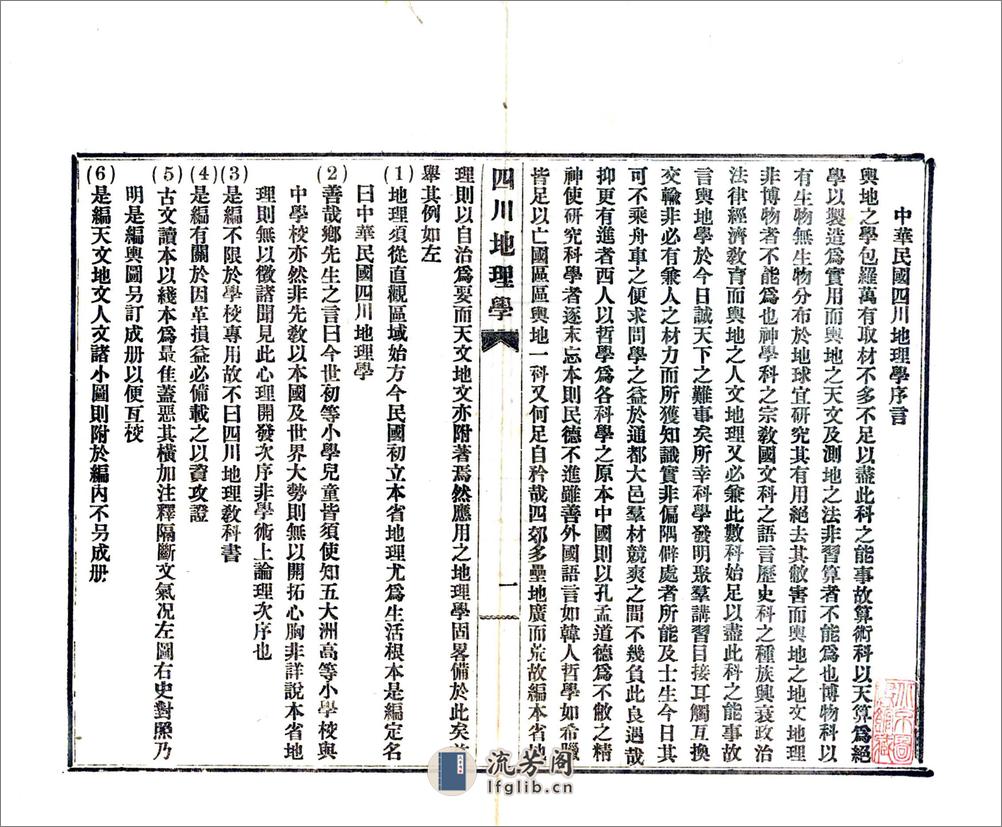 中華民國四川地理學序言
輿地之學包羅萬有取材不多不足以盡此科之能事故算術科以天算爲絕
學以製造爲實用而輿地之天文及測地之法非習算者不能爲也博物科以
有生物無生物分布於地球宜研究其有用絕去其敝害而輿地之地文地理
非博物者不能爲也神學科之宗敎國文科之語言歷史科之種族興衰政治
法律經濟敎育而輿地之人文地理又必兼此數科始足以盡此科之能事故
言輿地學於今日誠天下之難事矣所幸科學發明聚羣講習目接耳觸互換
交輸非必有兼人之材力而所獲知識實非偏隅僻處者所能及士生今日其
可不乘舟車之便求問學之益於通都大邑羣材競爽之間不幾負此良遇哉
抑更有進者西人以哲學爲各科學之原本中國則以孔孟道德爲不敝之精
神使研究科學者逐末忘本則民德不進雖善外國語言如韓人哲學如希臘
皆足以亡國區區輿地一科又何足自矜哉四郊多壘地廣而荒故編本省地
四川地理學
一
理則以自治爲要而天文地文亦附著焉然應用之地理學固畧備於此矣
舉其例如左
(1)地理須從直觀區域始方今民國初立本省地理尤爲生活根本是編定名
曰中華民國四川地理學
(2)善哉鄉先生之言曰今世初等小學兒童皆須使知五大洲高等小學校與
中學校亦然非先敎以本國及世界大勢則無以開拓心胸非詳說本省地
理則無以徵諸聞見此心理開發次序非學術上論理次序也
(3)是編不限於學校專用故不曰四川地理敎科書
(4)是編有關於因革損益必備載之以資攷證
(5)古文讀本以綫本爲最佳蓋惡其橫加注釋隔斷文氣况左圖右史對照乃
明是編輿圖另訂成册以便互校
(6)是編天文地文人文諸小圖則附於編內不另成册
流芳阁
lfglib.cn